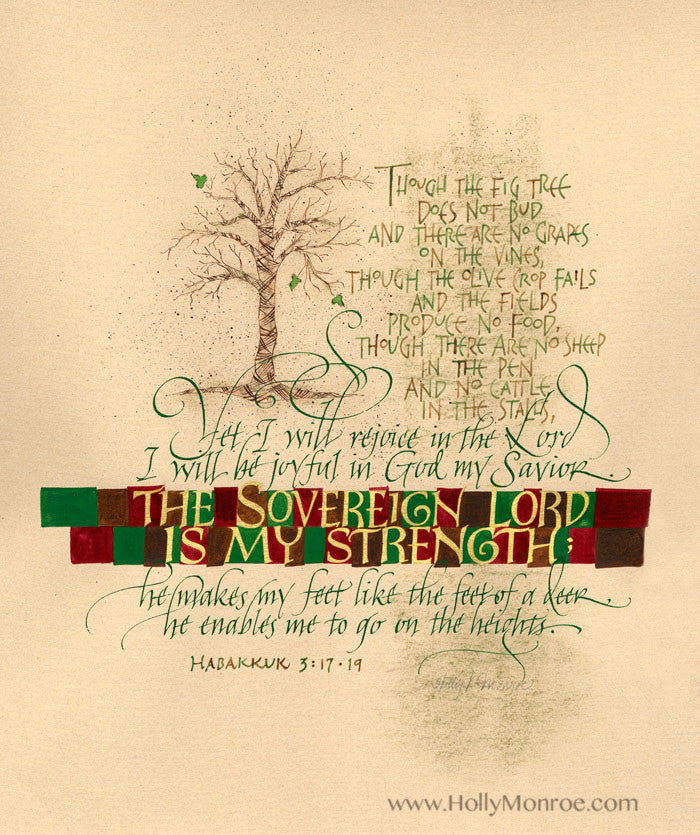 THOUGH THE FIG TREE
DOES NOT BUD
AND THERE ARE NO GRAPES
ON THE VINES,
THOUGH THE OLIVE CROP FAILS
AND THE FIELDS
PRODUCE NO FOOD,
THOUGH THERE ARE NO SHEEP
IN THE PEN
AND NO CATTLE
IN THE STALLS,
Yet I will rejoice in the Lord
I will be joyful in God my Savior.
THE SOVEREIGN LORD
IS MY STRENGTH;
he makes my feet like the feet of a deer.
he enables me to go on the heights.
HABAKKUK 3:17-19
Holly Monroe
www.HollyMonroe.com